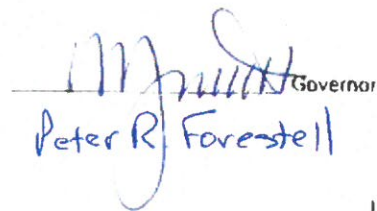 Governor
Peter R Forestell